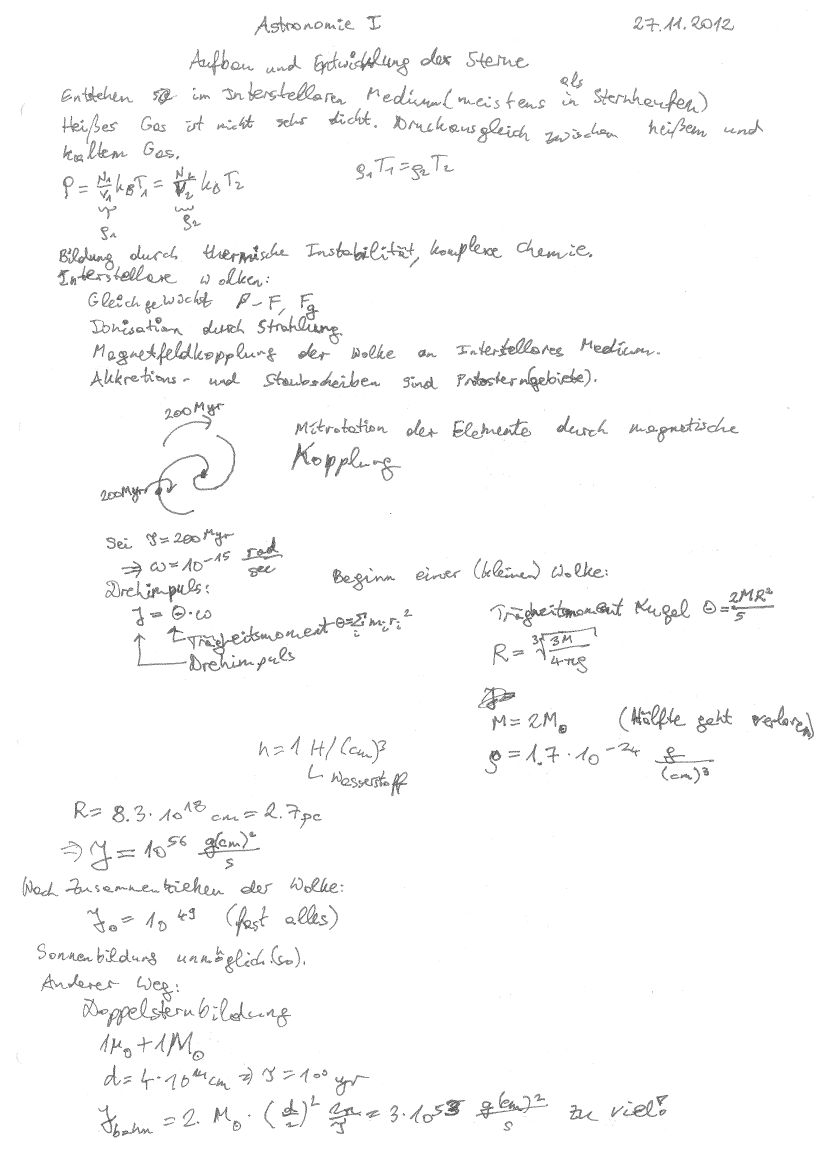 Astronomie I 27.11.2012
Aufbau und Entwicklung der Sterne
Entstehen im Interstellaren Medium (meistens als in Sternhaufen)
Heißes Gas ist nicht sehr dicht. Druckausgleich zwischen heißem und
kaltem Gas.
P = N₁/V₁ k_B T₁ = N₂/V₂ k_B T₂ ρ₁T₁ = ρ₂T₂
ρ₁ ρ₂
Bildung durch thermische Instabilität, komplexe Chemie.
Interstellare Wolken:
Gleichgewicht P - F, F_g
Ionisation durch Strahlung.
Magnetfeldkopplung der Wolke an Interstellares Medium.
Akkretions- und Staubscheiben sind Protostern(gebiete).
200 Myr
Mitrotation der Elemente durch magnetische
Kopplung
200 Myr
Sei T = 200 Myr
⇒ ω = 10^-15 rad/sec
Beginn einer (kleinen) Wolke:
Drehimpuls:
J = Θ·ω
Trägheitsmoment Θ = Σ_i m_i r_i²
Drehimpuls
Trägheitsmoment Kugel Θ = 2MR²/5
R = ³√(3M/4πρ)
M = 2M☉ (Hälfte geht verloren)
n = 1 H/(cm)³
Wasserstoff
ρ = 1.7 · 10^-24 g/(cm)³
R = 8.3 · 10^18 cm = 2.7 pc
⇒ J = 10^56 g(cm)²/s
Nach Zusammenziehen der Wolke:
J☉ = 10^49 (fast alles)
Sonnenbildung unmöglich (so).
Anderer Weg:
Doppelsternbildung
1M☉ + 1M☉
d = 4 · 10^14 cm ⇒ T = 100 yr
J_bahn = 2 · M☉ · (d/2)² 2π/T = 3 · 10^53 g(cm)²/s zu viel!